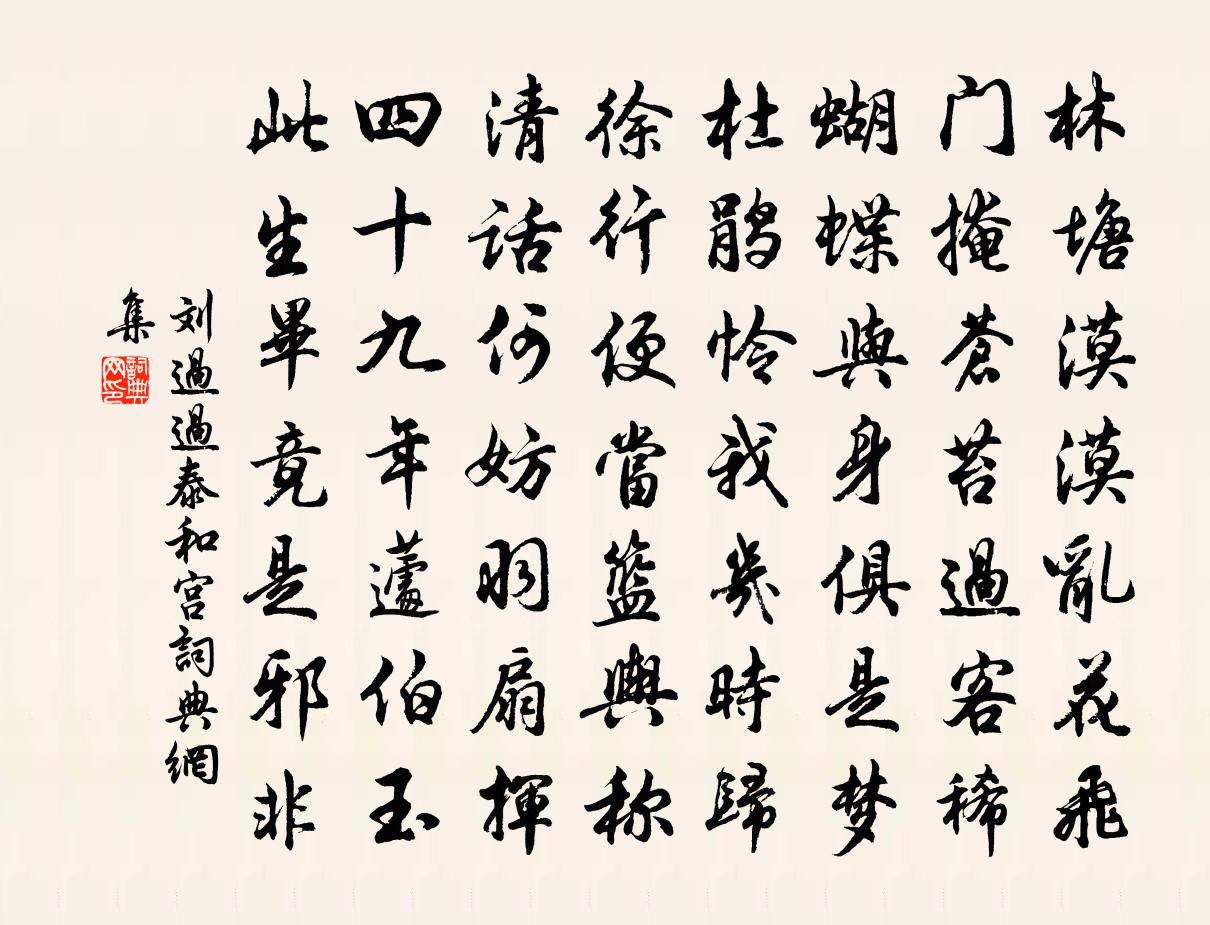 林塘漠漠亂花飛
门掩蒼苔過客稀
蝴蝶與身俱是梦
杜鹃怜我幾時歸
徐行便當籃輿称
清話何妨羽扇揮
四十九年蘧伯玉
此生畢竟是邪非
刘過過泰和宫詞典網
集
詞典
网印